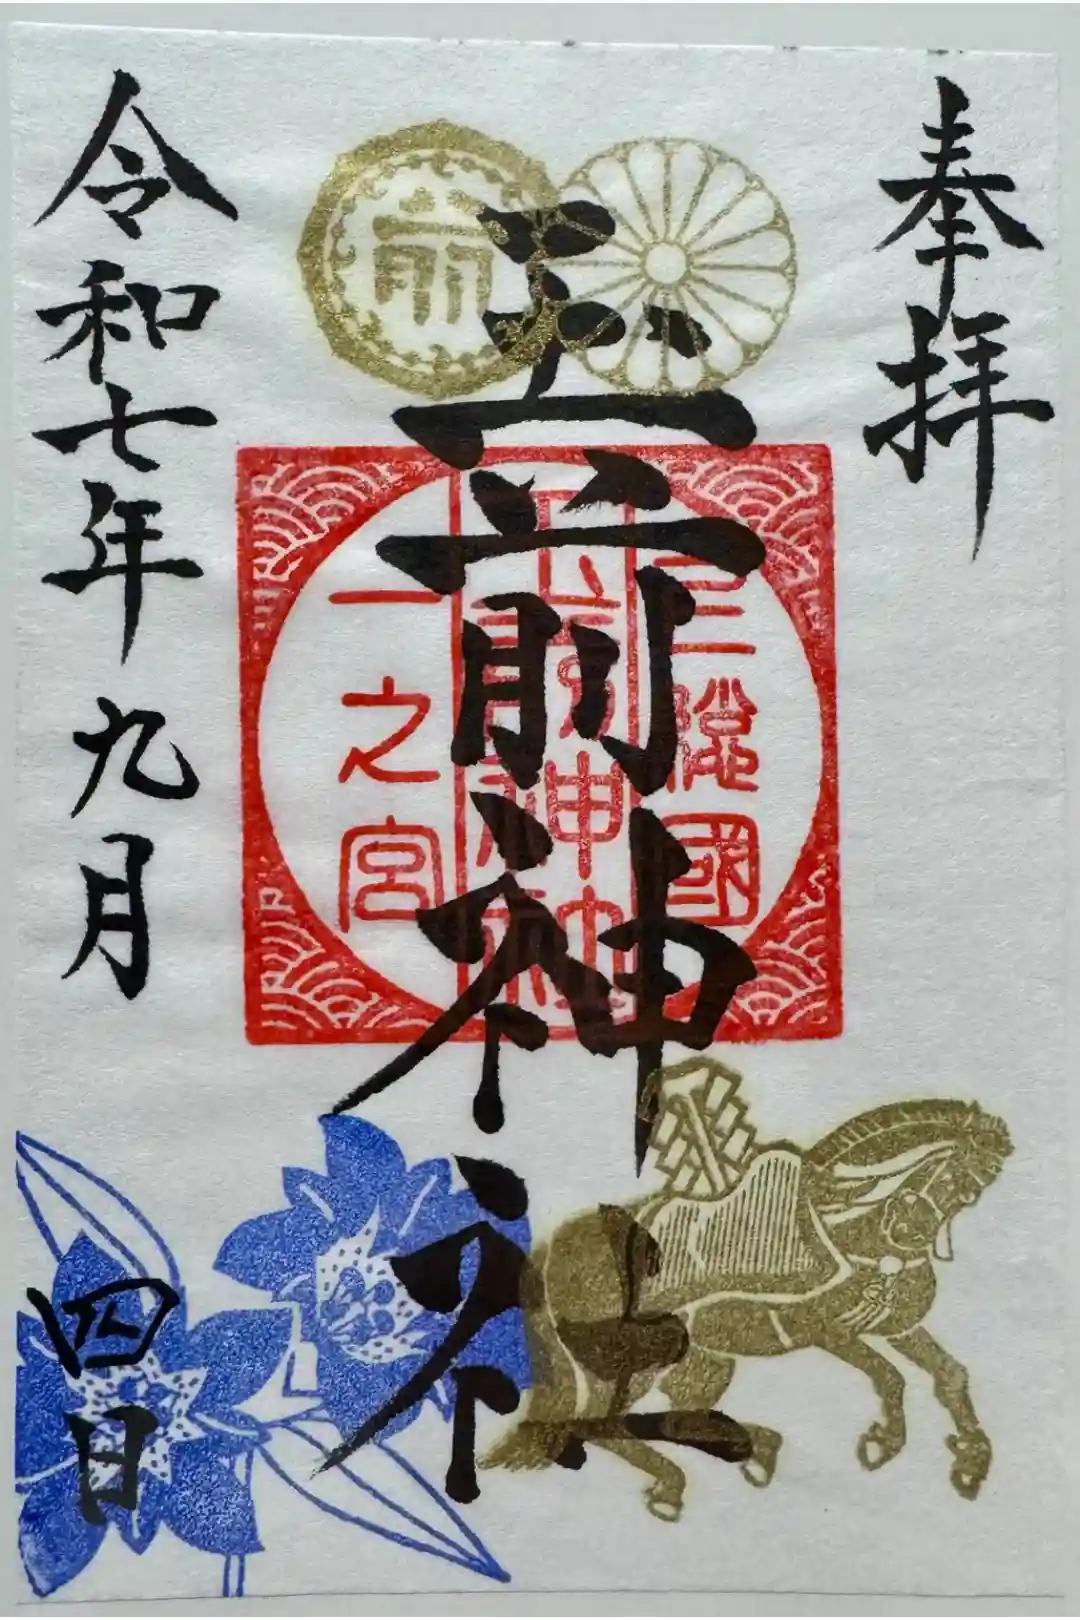 奉拝
玉前神社
上總國
一之宮
令和七年九月四日